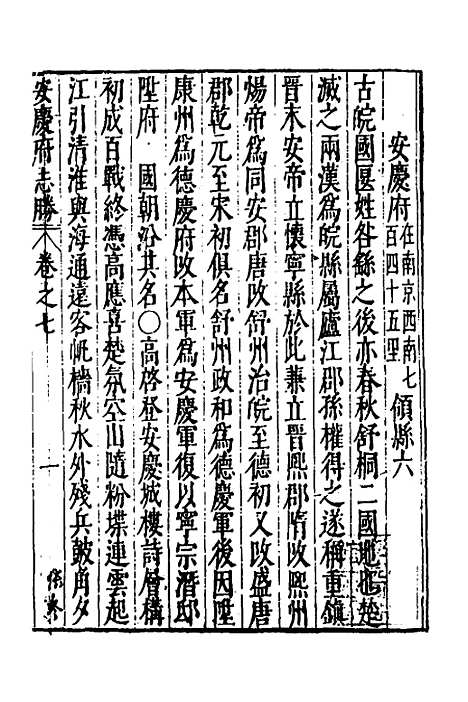 安慶府在南京西南七百四十五里領縣六
古皖國匽姓咎繇之後亦春秋舒桐二國地也楚
滅之兩漢爲皖縣屬廬江郡孫權得之遂稱重鎮
晉末安帝立懷寧縣於此兼立晉熙郡隋改熙州
煬帝爲同安郡唐改舒州治皖至德初又改盛唐
郡乾元至宋初俱名舒州政和爲德慶軍後因陞
康州爲德慶府改本軍爲安慶軍復以寧宗潛邸
陞府 國朝沿其名○高啓登安慶城樓詩層構
初成百戰終憑高應喜楚氛空山隨粉堞連雲起
江引清淮與海通遠客帆檣秋水外殘兵鼓角夕
安慶府志勝 卷之七 一